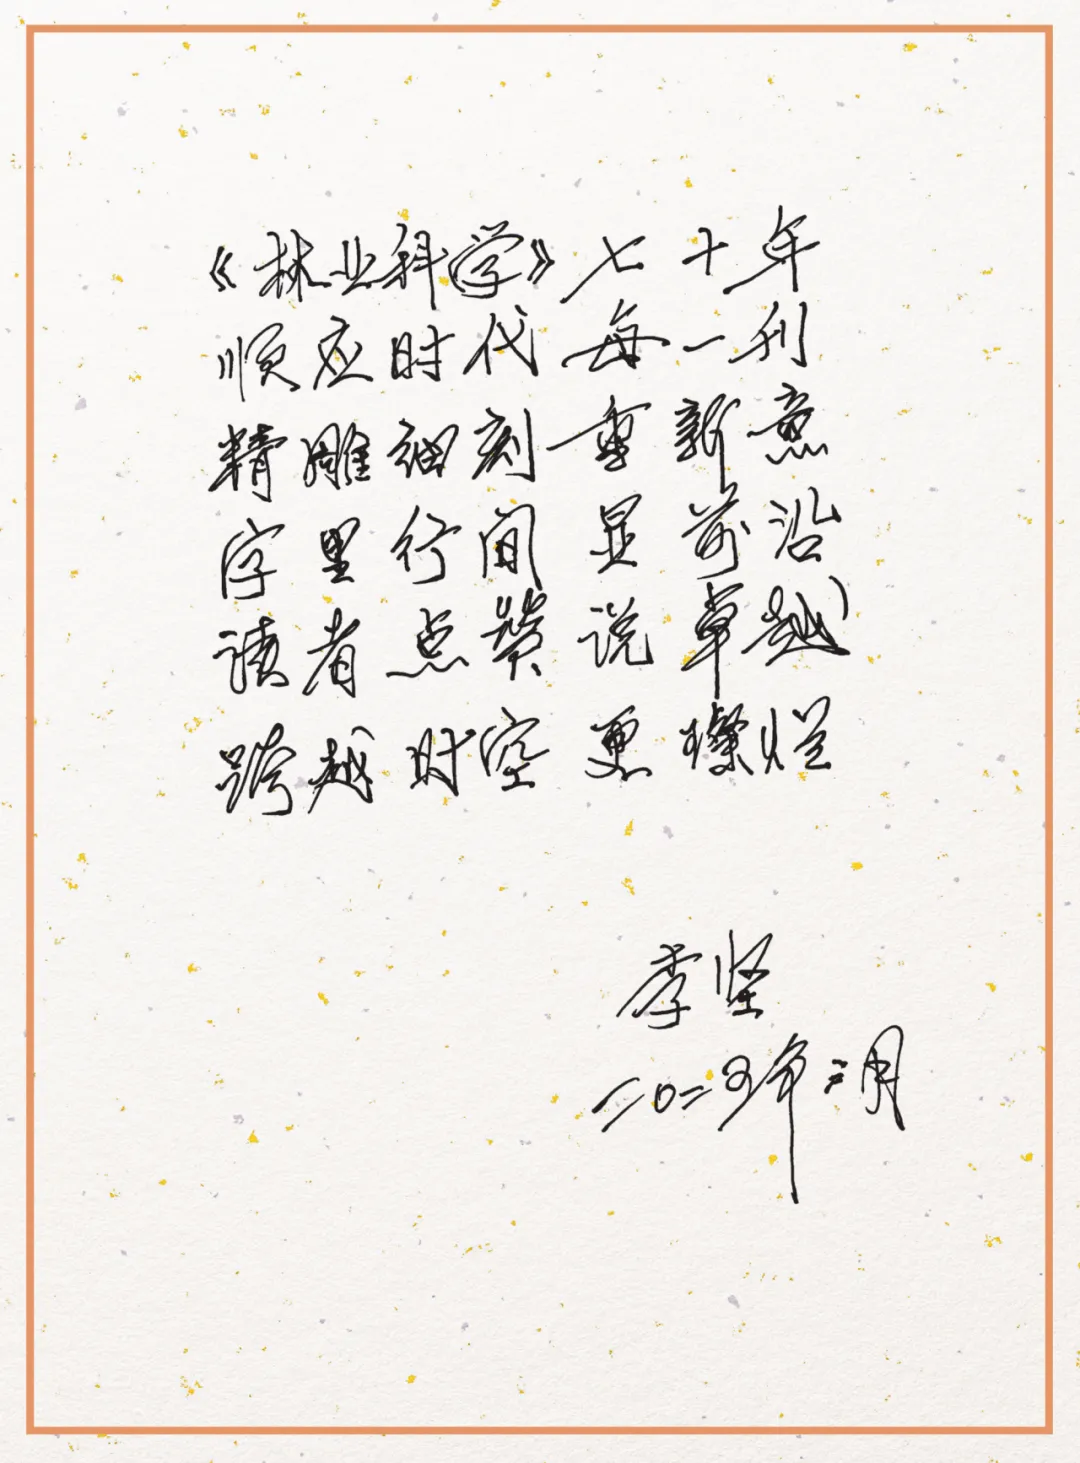 《林业科学》七十年
顺应时代每一刊
精雕细刻重新意
字里行间显前沿
读者点赞说卓越
跨越时空更燦烂
李坚
二〇二五年二月